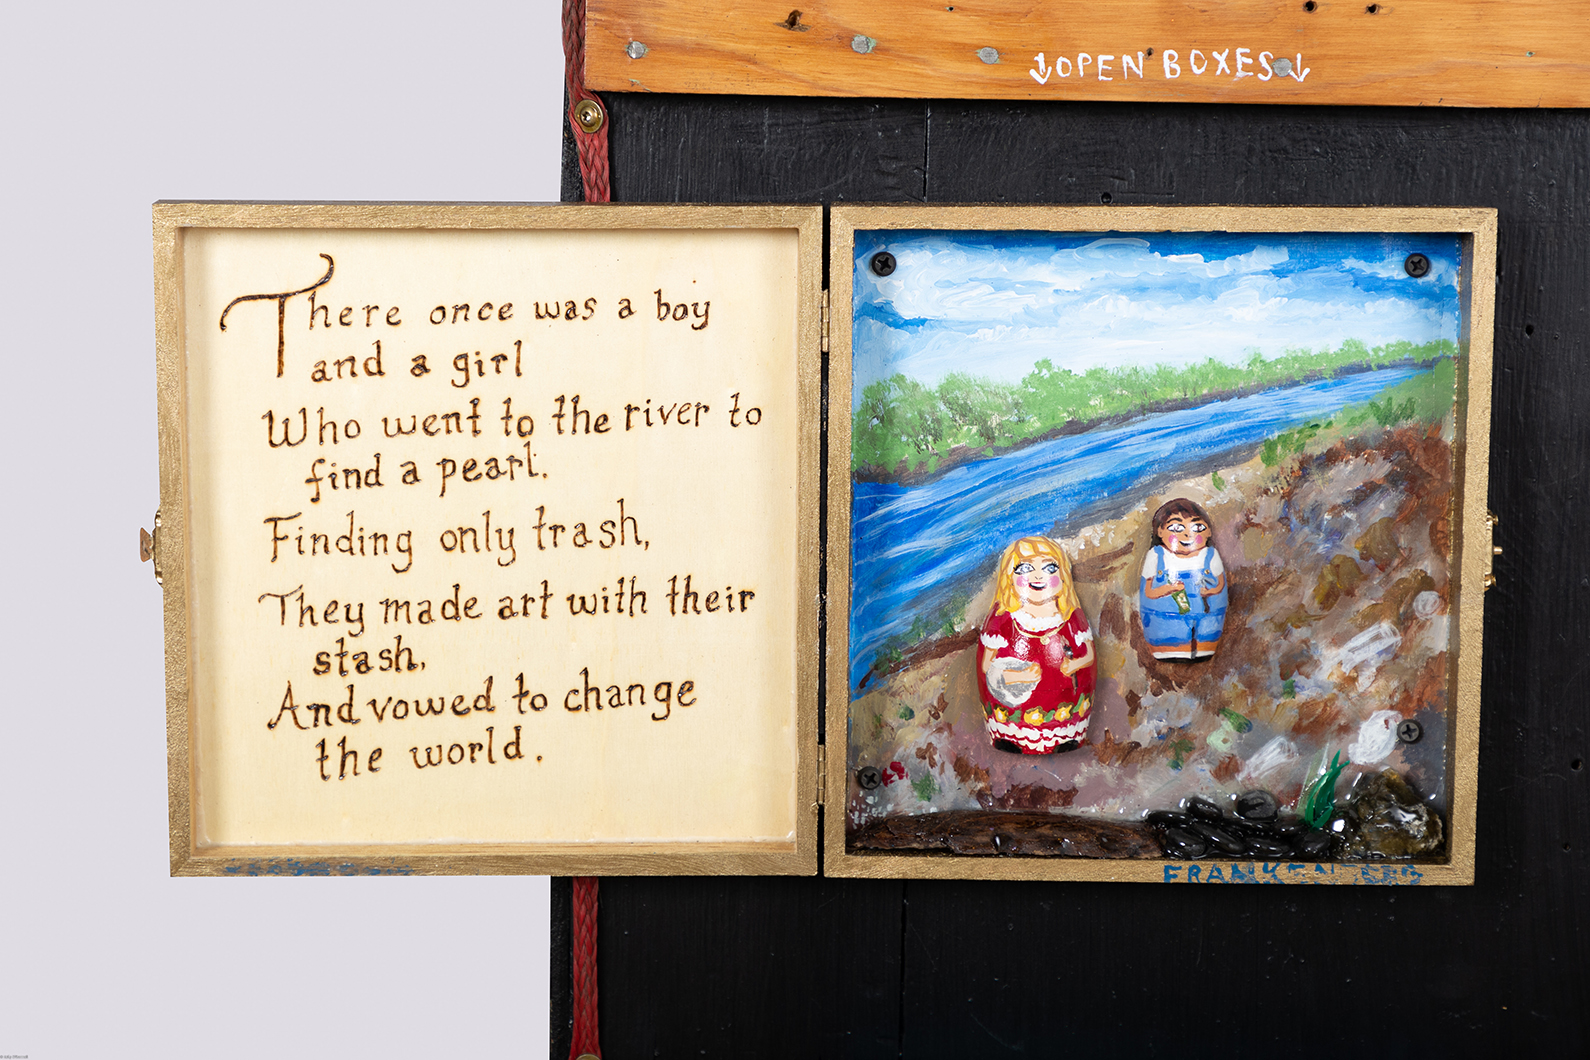 ↓OPEN BOXES↓
There once was a boy
and a girl
Who went to the river to
find a pearl.
Finding only trash,
They made art with their
stash,
And vowed to change
the world.